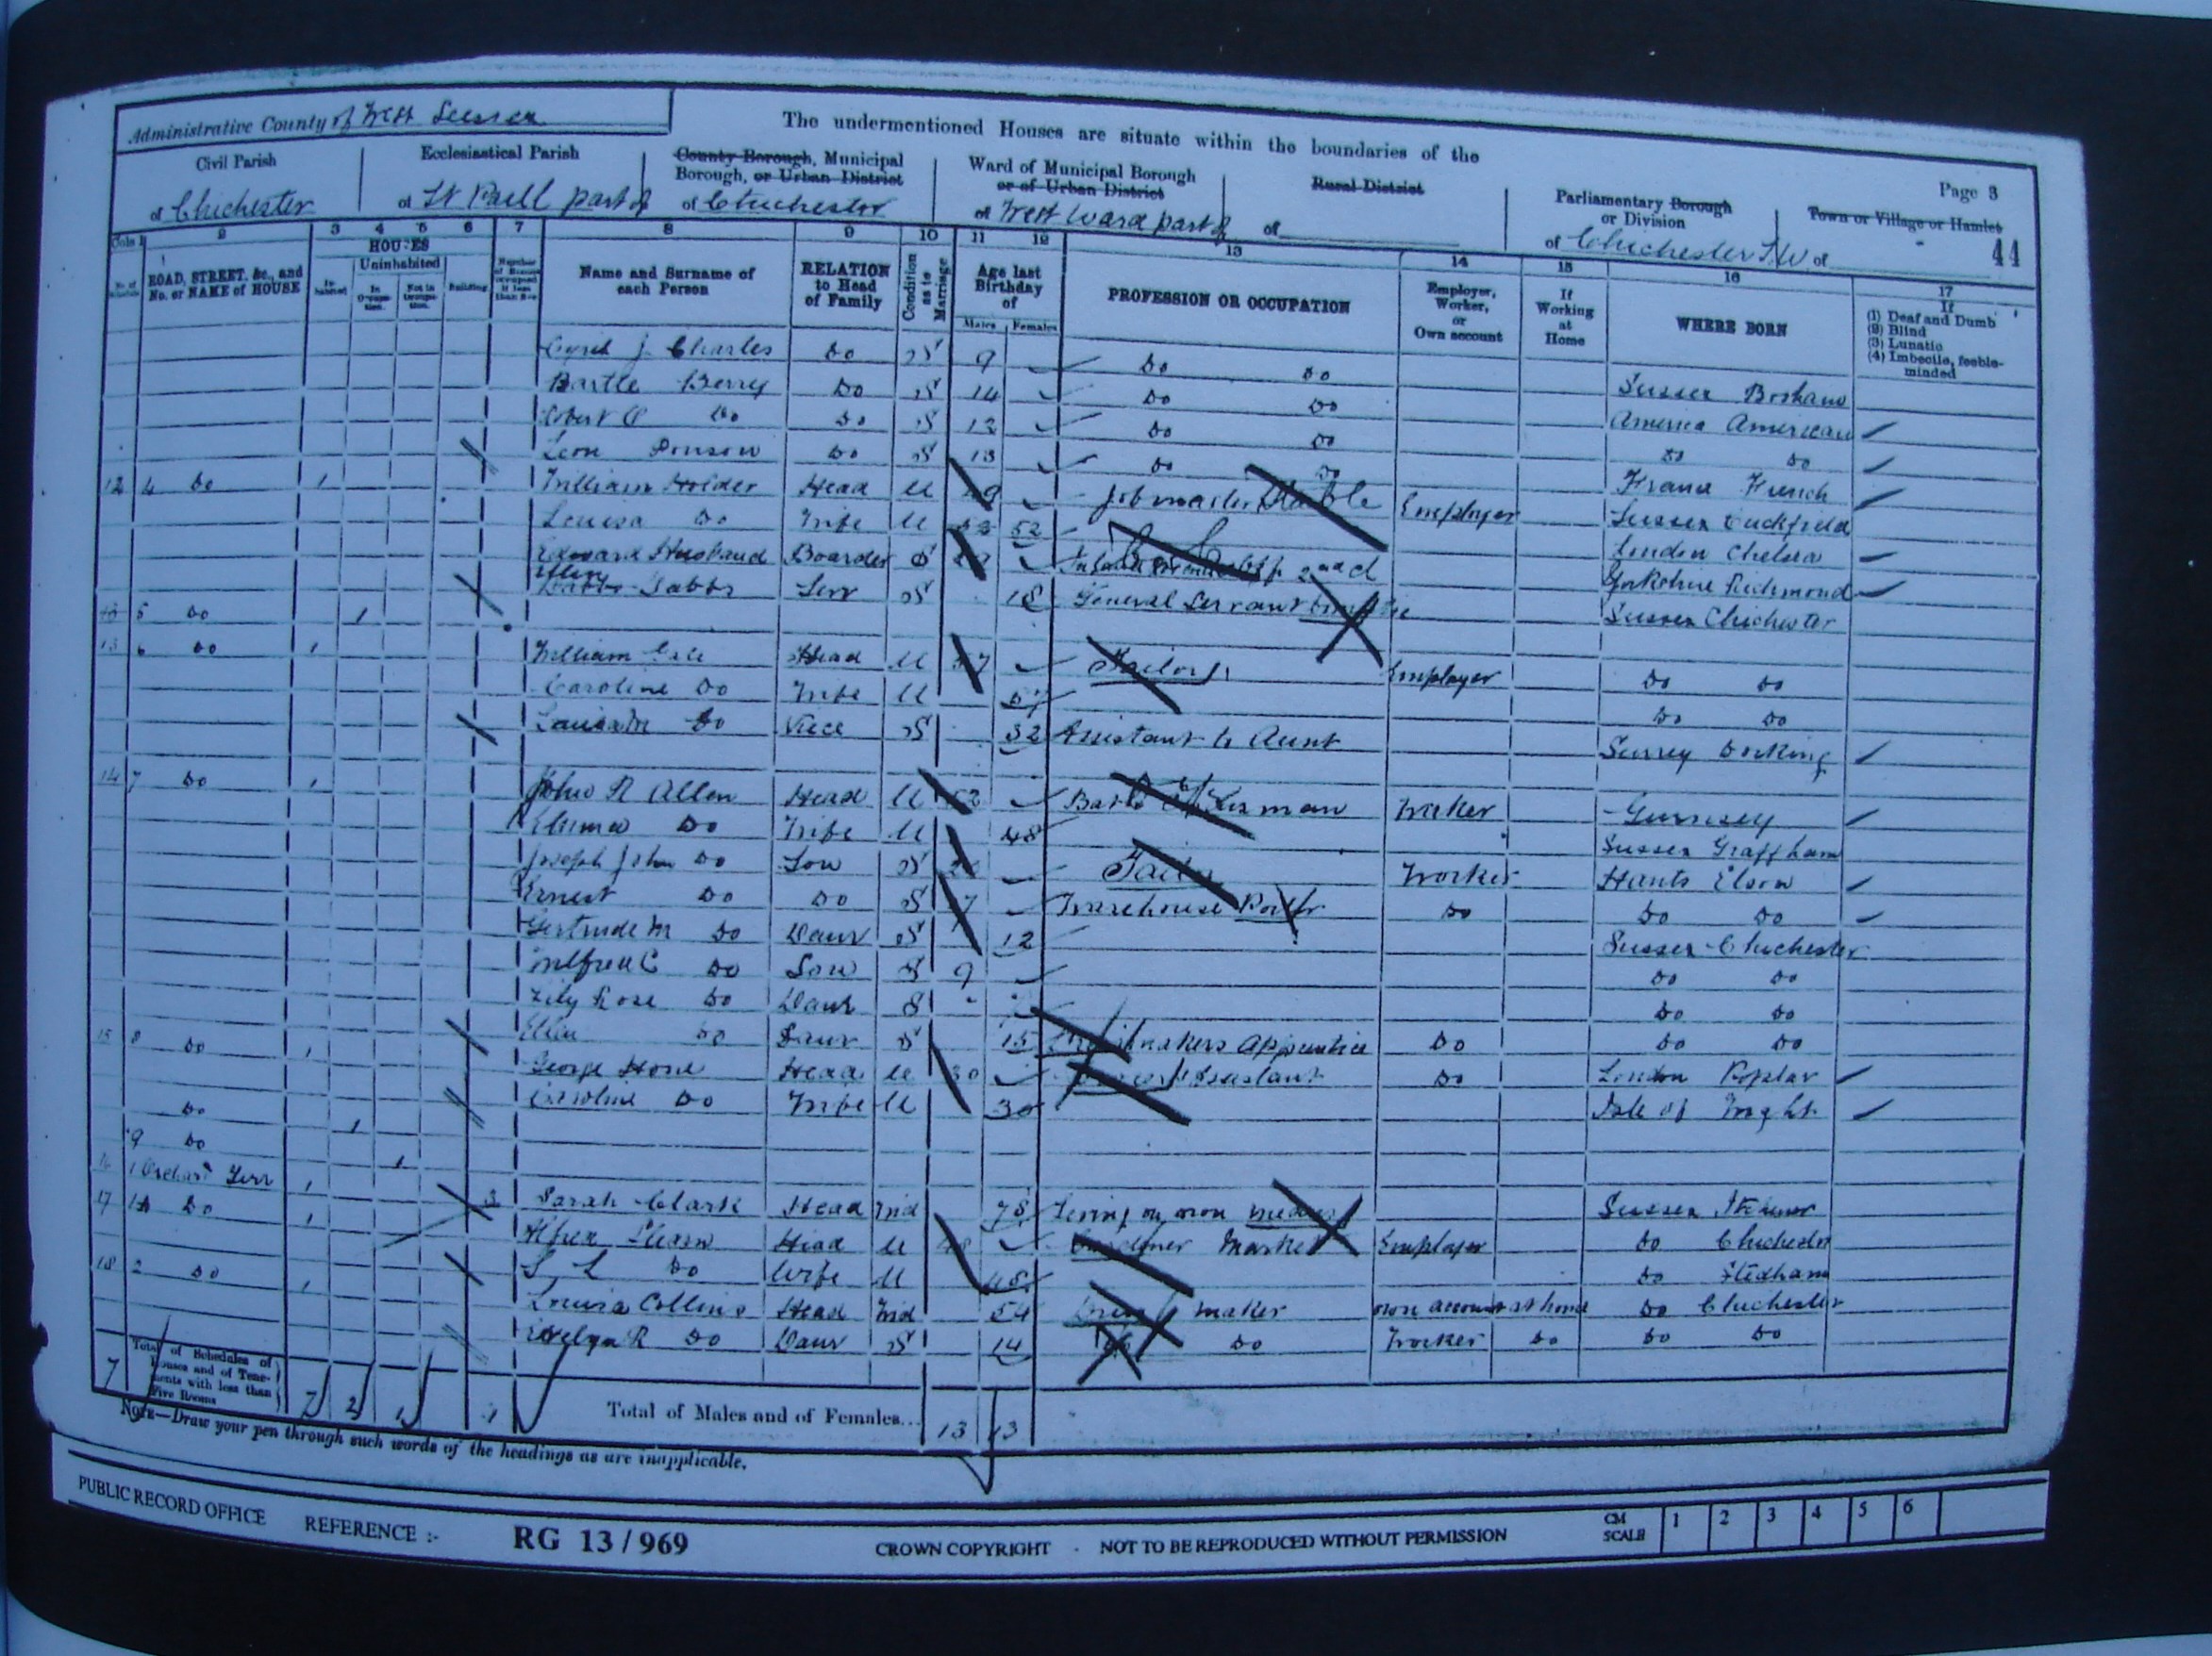 Administrative County of West Sussex
The undermentioned Houses are situate within the boundaries of the
Civil Parish
of Chichester
Ecclesiastical Parish
of St Paul part of
County Borough, Municipal
Borough, or Urban District
of Chichester
Ward of Municipal Borough
or of Urban District
of West Ward part of
Rural District
of
Parliamentary Borough
or Division
of Chichester S.W.
Page 3
Town or Village or Hamlet
of
44
2 3 4 5 6 7 8 9 10 11 12 13 14 15 16 17
ROAD, STREET, &c., and
No. or NAME of HOUSE
HOUSES
Uninhabited
Building
Name and Surname of
each Person
RELATION
to Head
of Family
Condition
as to
Marriage
Age last
Birthday
of
Males Females
PROFESSION OR OCCUPATION
Employer,
Worker,
or
Own account
If
Working
at
Home
WHERE BORN
If
(1) Deaf and Dumb
(2) Blind
(3) Lunatic
(4) Imbecile, feeble-
minded
Cyril J. Charles Do S 9 Do Do Sussex Bosham
Bartle Berry Do S 14 Do Do America American
Do Do S 12 Do Do Do Do
Leon Do S 13 Do Do France French
12 4 Do 1 William Holder Head M Job master Employer Sussex Cuckfield
Louisa Do Wife M 52 London Chelsea
Edward Husband Boarder S Yorkshire Richmond
Serv S 18 General Servant Sussex Chichester
5 Do 1
13 6 Do 1 William Head M Tailor Employer Do Do
Caroline Do Wife M 57 Do Do
Louisa M Do Niece S 32 Assistant to Aunt Surrey Dorking
14 7 Do 1 John R Allen Head M 52 Worker Guernsey
Emma Do Wife M 48 Sussex Graffham
Joseph John Do Son S Tailor Worker Hants Elson
Ernest Do Do S Warehouse Porter Do Do Do
Gertrude M Do Daur S 12 Sussex Chichester
Wilfred C Do Son S 9 Do Do
Lily Rose Do Daur S Do Do
Ellen Do Daur S 15 makers Apprentice Do Do Do
15 8 Do 1 George Head M 30 Assistant Do London Poplar
Caroline Do Wife M 30 Isle of Wight
Do 1
9 Do 1
16 1 Orchard Terr 1 3 Sarah Clark Head Wid 78 Living on own means Sussex
17 1a Do 1 Alfred Head M 48 Gardener Market Employer Do Chichester
S. L Do Wife M 48 Do Stedham
18 2 Do 1 Louisa Collins Head Wid 54 Dress maker own account at home Do Chichester
Evelyn R Do Daur S 14 Do Do Worker Do Do Do
7 Total of Schedules of
Houses and of Tene-
ments with less than
Five Rooms 7 2 1 1
Total of Males and of Females... 13 13
NOTE—Draw your pen through such words of the headings as are inapplicable.
PUBLIC RECORD OFFICE REFERENCE :- RG 13 / 969
CROWN COPYRIGHT - NOT TO BE REPRODUCED WITHOUT PERMISSION
CM
SCALE 1 2 3 4 5 6